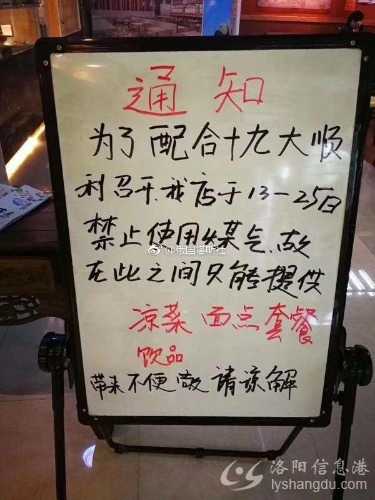 通知
为了配合十九大顺
利召开.我店于13-25日
禁止使用煤气.故
在此之间只能提供
凉菜 面点 套餐
饮品
带来不便敬请谅解
洛阳信息港
lyshangdu.com